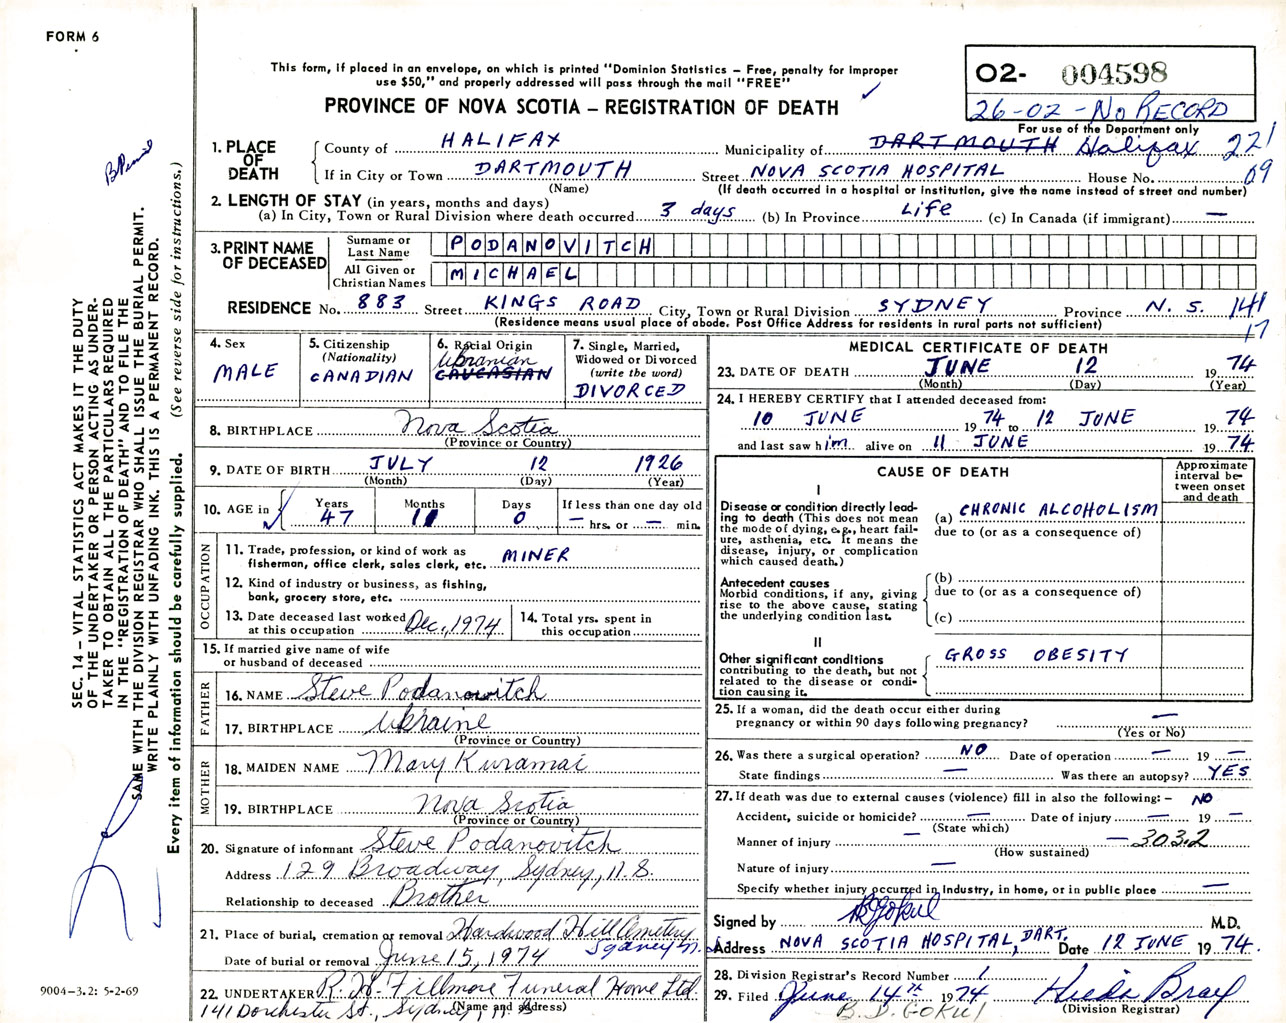 FORM 6
This form, if placed in an envelope, on which is printed "Dominion Statistics — Free, penalty for improper
use $50," and properly addressed will pass through the mail "FREE"
PROVINCE OF NOVA SCOTIA — REGISTRATION OF DEATH
O2- 004598
26-02-No RECORD
For use of the Department only
1. PLACE OF DEATH
County of HALIFAX Municipality of DARTMOUTH Halifax 221
If in City or Town DARTMOUTH Street NOVA SCOTIA HOSPITAL House No. 09
(Name) (If death occurred in a hospital or institution, give the name instead of street and number)
2. LENGTH OF STAY (in years, months and days)
(a) In City, Town or Rural Division where death occurred 3 days (b) In Province Life (c) In Canada (if immigrant) —
3. PRINT NAME OF DECEASED
Surname or Last Name PODANOVITCH
All Given or Christian Names MICHAEL
RESIDENCE No. 883 Street KINGS ROAD City, Town or Rural Division SYDNEY Province N.S. 141
(Residence means usual place of abode. Post Office Address for residents in rural parts not sufficient) 17
4. Sex
MALE
5. Citizenship
(Nationality)
CANADIAN
6. Racial Origin
Ukranian
CAUCASIAN
7. Single, Married,
Widowed or Divorced
(write the word)
DIVORCED
8. BIRTHPLACE Nova Scotia
(Province or Country)
9. DATE OF BIRTH JULY 12 1926
(Month) (Day) (Year)
10. AGE in Years Months Days If less than one day old
47 11 0 — hrs. or — min.
OCCUPATION
11. Trade, profession, or kind of work as
fisherman, office clerk, sales clerk, etc. MINER
12. Kind of industry or business, as fishing,
bank, grocery store, etc.
13. Date deceased last worked
at this occupation Dec., 1974
14. Total yrs. spent in
this occupation
15. If married give name of wife
or husband of deceased
FATHER
16. NAME Steve Podanowitch
17. BIRTHPLACE Ukraine
(Province or Country)
MOTHER
18. MAIDEN NAME Mary
19. BIRTHPLACE Nova Scotia
(Province or Country)
20. Signature of informant Steve Podanovitch
Address 129 Broadway, Sydney, N.S.
Relationship to deceased Brother
21. Place of burial, cremation or removal Hardwood Hill Cemetery
Sydney N.
Date of burial or removal June 15, 1974
22. UNDERTAKER R. W. Fillmore Funeral Home Ltd.
(Name and address)
141 Dorchester St., Sydney, N.S.
MEDICAL CERTIFICATE OF DEATH
23. DATE OF DEATH JUNE 12 1974
(Month) (Day) (Year)
24. I HEREBY CERTIFY that I attended deceased from:
10 JUNE 1974 to 12 JUNE 1974
and last saw him alive on 11 JUNE 1974
CAUSE OF DEATH
Approximate
interval be-
tween onset
and death
I
Disease or condition directly lead-
ing to death (This does not mean
the mode of dying, e.g., heart fail-
ure, asthenia, etc. It means the
disease, injury, or complication
which caused death.)
(a) CHRONIC ALCOHOLISM
due to (or as a consequence of)
Antecedent causes
Morbid conditions, if any, giving
rise to the above cause, stating
the underlying condition last.
(b)
due to (or as a consequence of)
(c)
II
Other significant conditions
contributing to the death, but not
related to the disease or condi-
tion causing it.
GROSS OBESITY
25. If a woman, did the death occur either during
pregnancy or within 90 days following pregnancy? —
(Yes or No)
26. Was there a surgical operation? NO Date of operation — 19 —
State findings — Was there an autopsy? YES
27. If death was due to external causes (violence) fill in also the following: — NO
Accident, suicide or homicide? — Date of injury — 19 —
(State which)
Manner of injury — — 303.2
(How sustained)
Nature of injury —
Specify whether injury occurred in industry, in home, or in public place —
Signed by B Gokul M.D.
Address NOVA SCOTIA HOSPITAL, DART. Date 12 JUNE 1974.
28. Division Registrar's Record Number 1
29. Filed June 14th 1974 Hilda Bray
(Division Registrar)
B. D. GOKUL
SEC. 14 — VITAL STATISTICS ACT MAKES IT THE DUTY
OF THE UNDERTAKER OR PERSON ACTING AS UNDER-
TAKER TO OBTAIN ALL THE PARTICULARS REQUIRED
IN THE "REGISTRATION OF DEATH" AND TO FILE THE
SAME WITH THE DIVISION REGISTRAR WHO SHALL ISSUE THE BURIAL PERMIT.
WRITE PLAINLY WITH UNFADING INK. THIS IS A PERMANENT RECORD.
Every item of information should be carefully supplied. (See reverse side for instructions.)
9004-3.2: 5-2-69